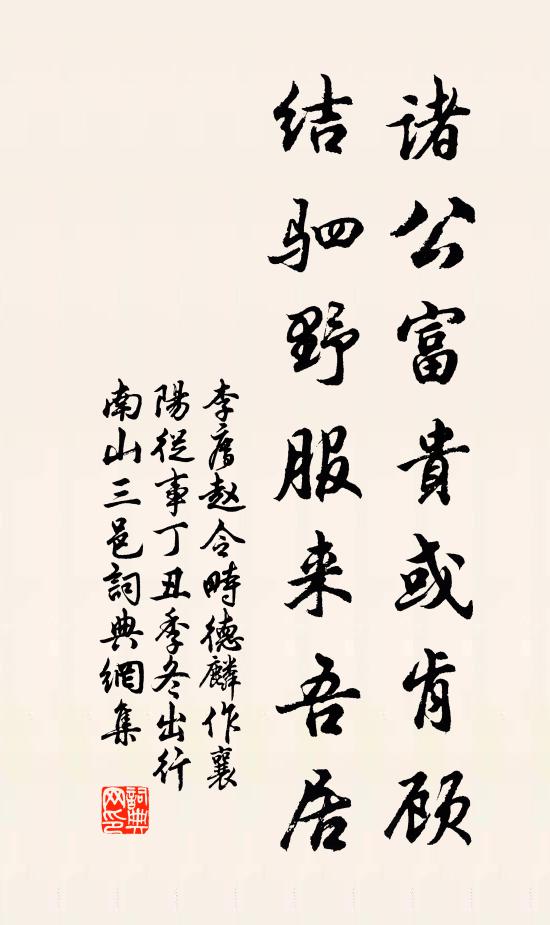 诸公富貴或肯顾
结驷野服来吾居
李廌赵令畤德麟作襄
陽從事丁丑季冬出行
南山三邑詞典網集
詞典网印